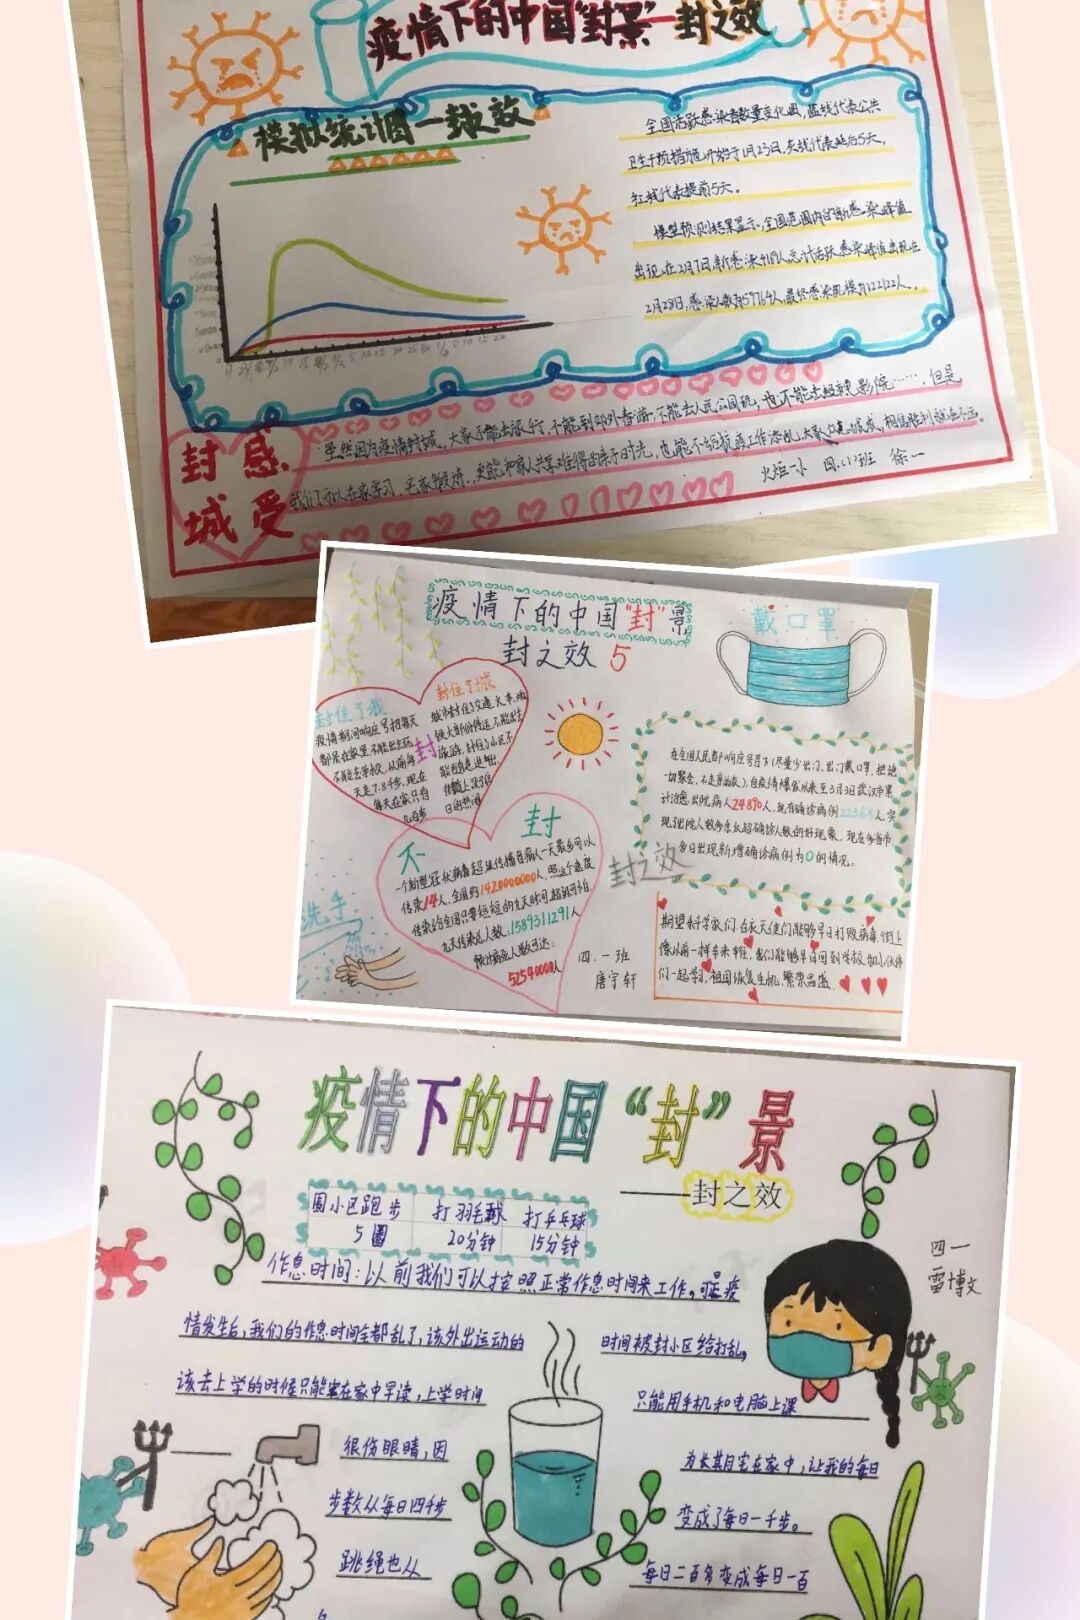 疫情下的中国“封”景—封之效
模拟统计图一封城效
全国活跃感染者数量变化图,蓝线代表公共
卫生干预措施开始于1月23日,灰线代表延后5天,
红线代表提前5天。
模型预测结果显示,全国范围内的新感染峰值
出现在2月7日,新感染
人,总计活跃感染峰值出现在
2月28日,感染人数为59764人,最终感染规模为122122人。
封城
感受
虽然因为疫情封城,大家不能去旅行,不能到郊外春游,不能去人民公园玩,也不能去超市电影院……,但是
我们可以在家学习,宅家锻炼,更能和家人共享难得的亲子时光,也能不给抗疫工作添乱,大家
相信胜利就在不远。
火炬一小 四.(1)班 徐一
疫情下的中国“封”景
封之效 5
戴口罩
封住了我
疫情期间响应号召每天
都呆在家里,不能出去玩
不能去学校,从前每
天走7.8千步,现在
每天在家只有
几百步
封住了城
城市封住了交通,火车,地
铁大部份停运,不能出去
旅游,封住了小区不
能随意进出,
往日的热闹
封
在全国人民
响应号召下(尽量少出门、出门戴口罩,拒绝
一切聚会,不走亲访友),自疫情爆发以来至3月3日武汉市累
计治愈出院病人24890人,现有确诊病例22368人,实
现了出院人数多余
超确诊人数的好现象,现在多省市,
多日出现新增确诊病例为0的情况。
不
封
一个新型冠状病毒超级传播自病人一天最多可以
传染14人,全国约1420000000人,照这个速度
传染给全国只要短短的九天时间
九天传染总人数:1589311291人
预计病死人数可达:
52540000人
封之效
洗手
四.一班
唐宇轩
期望科学家们、白衣天使们能够早日打败病毒,街上
像以前一样车来车往,我们能够早日回到学校和小伙伴
们一起学习,祖国恢复生机,繁荣昌盛。
疫情下的中国“封”景
——封之效
围小区跑步 打羽毛球 打乒乓球
5圈 20分钟 15分钟
四一
雷博文
作息时间:以前我们可以按照正常作息时间来工作。可是疫
情发生后,我们的作息时间全都乱了,该外出运动的
时间被封小区给打乱,
该去上学的时候只能宅在家中早读,上学时间
只能用手机和电脑上课
很伤眼睛,因
为长期宅在家中,让我的每日
步数从每日四千步
变成了每日一千步。
跳绳也从
每日二百多变成每日一百